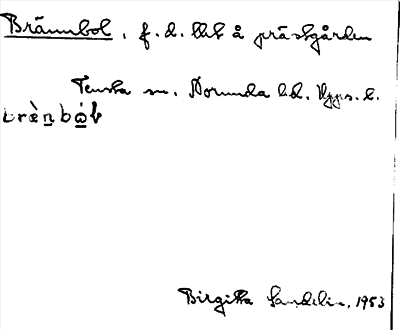 Brännbol, f.d. lht å prästgården
Tenska sn. Norunda hd. Upps. l.
Birgitta Sandelin, 1953